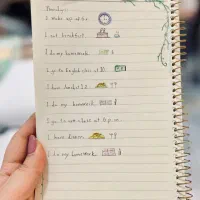 Thursday:
I wake up at 6:00
I eat breakfast.
I do my homework.
I go to English class at 10.
I have lunch at 1:00.
I do my homework.
I go to class at 6 p.m.
I have dinner.
I do my homework.